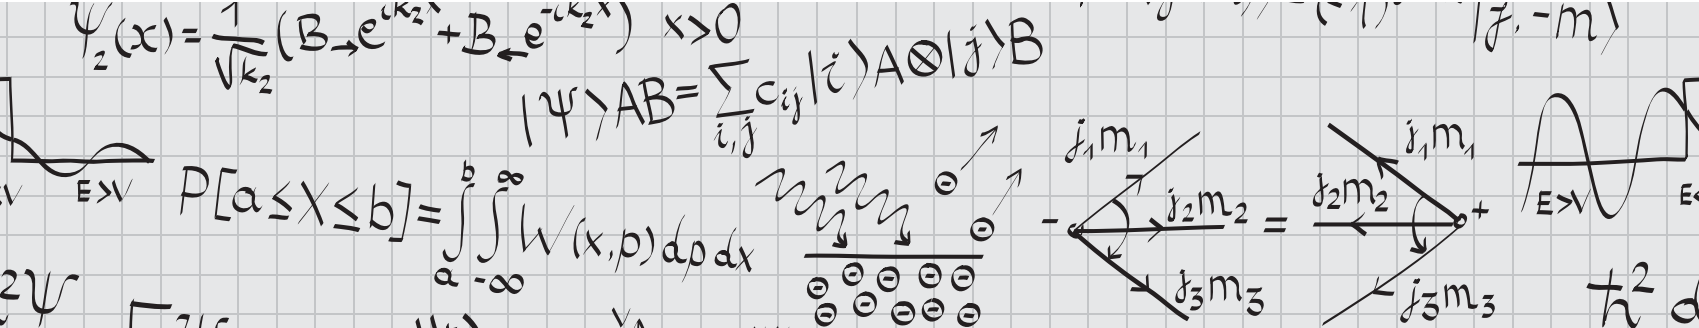 ψ₂(x) = 1/√k₂ (B→e^{ik₂x} + B←e^{-ik₂x}) x>0
|j, -m⟩
|Ψ⟩AB = ∑_{i,j} c_{ij} |i⟩A⊗|j⟩B
E>V
P[a≤X≤b] = ∫_a^b ∫_{-∞}^{∞} W(x,p) dp dx
- j₁m₁ j₂m₂ j₃m₃ = j₁m₁ j₂m₂ j₃m₃ +
E>V
²Ψ
ħ² d